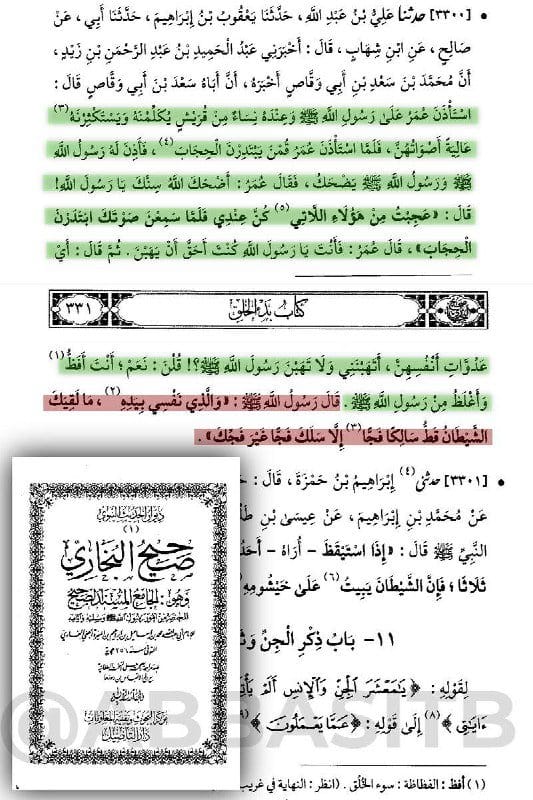 • [٣٣٠٠] حدثنا عَلِيُّ بْنُ عَبْدِ اللَّهِ، حَدَّثَنَا يَعْقُوبُ بْنُ إِبْرَاهِيمَ، حَدَّثَنَا أَبِي، عَنْ
صَالِحٍ، عَنِ ابْنِ شِهَابٍ، قَالَ: أَخْبَرَنِي عَبْدُ الْحَمِيدِ بْنُ عَبْدِ الرَّحْمَنِ بْنِ زَيْدٍ،
أَنَّ مُحَمَّدَ بْنَ سَعْدِ بْنِ أَبِي وَقَّاصٍ أَخْبَرَهُ، أَنَّ أَبَاهُ سَعْدَ بْنَ أَبِي وَقَّاصٍ قَالَ:
اسْتَأْذَنَ عُمَرُ عَلَى رَسُولِ اللَّهِ ﷺ وَعِنْدَهُ نِسَاءٌ مِنْ قُرَيْشٍ يُكَلِّمْنَهُ وَيَسْتَكْثِرْنَهُ (٣)
عَالِيَةً أَصْوَاتُهُنَّ، فَلَمَّا اسْتَأْذَنَ عُمَرُ قُمْنَ يَبْتَدِرْنَ الْحِجَابَ (٤)، فَأَذِنَ لَهُ رَسُولُ اللَّهِ
ﷺ وَرَسُولُ اللَّهِ ﷺ يَضْحَكُ، فَقَالَ عُمَرُ: أَضْحَكَ اللَّهُ سِنَّكَ يَا رَسُولَ اللَّهِ!
قَالَ: «عَجِبْتُ مِنْ هَؤُلَاءِ اللَّاتِي (٥) كُنَّ عِنْدِي فَلَمَّا سَمِعْنَ صَوْتَكَ ابْتَدَرْنَ
الْحِجَابَ»، قَالَ عُمَرُ: فَأَنْتَ يَا رَسُولَ اللَّهِ كُنْتَ أَحَقَّ أَنْ يَهَبْنَ. ثُمَّ قَالَ: أَيْ
كتاب بدء الخلق
٣٣١
عَدُوَّاتِ أَنْفُسِهِنَّ، أَتَهَبْنَنِي وَلَا تَهَبْنَ رَسُولَ اللَّهِ ﷺ؟! قُلْنَ: نَعَمْ؛ أَنْتَ أَفَظُّ (١)
وَأَغْلَظُ مِنْ رَسُولِ اللَّهِ ﷺ. قَالَ رَسُولُ اللَّهِ ﷺ: «وَالَّذِي نَفْسِي بِيَدِهِ (٢)، مَا لَقِيَكَ
الشَّيْطَانُ قَطُّ سَالِكًا فَجًّا (٣) إِلَّا سَلَكَ فَجًّا غَيْرَ فَجِّكَ».
• [٣٣٠١] حدثني (٤) إِبْرَاهِيمُ بْنُ حَمْزَةَ، قَالَ:
عَنْ مُحَمَّدِ بْنِ إِبْرَاهِيمَ، عَنْ عِيسَى بْنِ
النَّبِيِّ ﷺ قَالَ: «إِذَا اسْتَيْقَظَ - أُرَاهُ -
ثَلَاثًا؛ فَإِنَّ الشَّيْطَانَ يَبِيتُ (٦) عَلَى خَيْشُومِهِ
١١- بَابُ ذِكْرِ الْجِنِّ
لِقَوْلِهِ: ﴿يَا مَعْشَرَ الْجِنِّ وَالْإِنْسِ أَلَمْ
ءَايَٰتِي﴾ (٨) إِلَى قَوْلِهِ: ﴿عَمَّا يَعْمَلُونَ﴾ (٩)
(١) أفظ: الفظاظة: سوء الخُلُق. (انظر: النهاية في غريب
ديوان الحديث النبوي
(١)
صحيح البخاري
وهو: الجامع المسند الصحيح
دار التأصيل
@ABBASITB